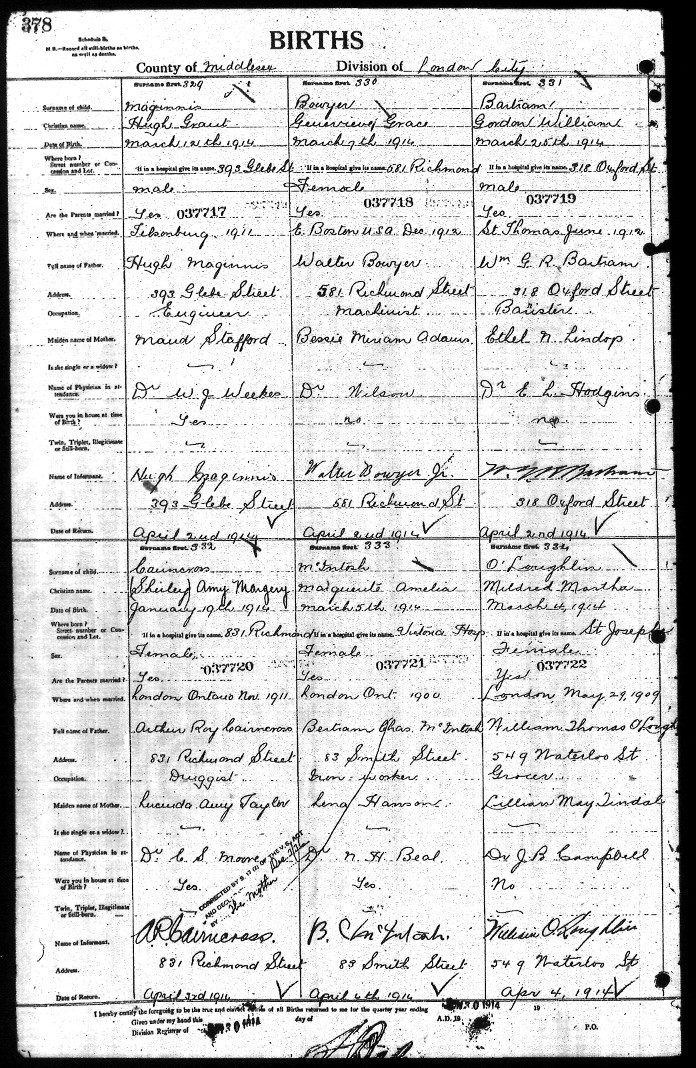 378
Schedule B.
N.B.—Record all still-births as births, as well as deaths.
BIRTHS
County of Middlesex Division of London City
Surname first. 329 Surname first. 330 Surname first. 331
Surname of child. Maginnis Bowyer Bartram
Christian name. Hugh Grant Genevieve Grace Gordon William
Date of Birth. March 12th 1914 March 7th 1914 March 25th 1914
Where born? Street number or Concession and Lot. If in a hospital give its name. 393 Glebe St If in a hospital give its name. 581 Richmond If in a hospital give its name. 318 Oxford St
Sex. Male Female Male
037717 037718 037719
Are the Parents married? Yes Yes Yes
Where and when married. Tilsonburg 1911 E. Boston USA Dec 1912 St Thomas June 1912
Full name of Father. Hugh Maginnis Walter Bowyer Wm G. R. Bartram
Address. 393 Glebe Street 581 Richmond Street 318 Oxford Street
Occupation. Engineer Machinist Barrister
Maiden name of Mother. Maud Stafford Bessie Miriam Adams Ethel N. Lindop
Is she single or a widow?
Name of Physician in attendance. Dr W J Weekes Dr Wilson Dr E. L. Hodgins
Were you in house at time of Birth? Yes no no
Twin, Triplet, Illegitimate or Still-born.
Name of Informant. Hugh Maginnis Walter Bowyer Jr.
Address. 393 Glebe Street 581 Richmond St 318 Oxford Street
Date of Return. April 2nd 1914 April 2nd 1914 April 2nd 1914
Surname first. 332 Surname first. 333 Surname first. 334
Surname of child. Cairncross McIntosh O'Loughlin
Christian name. (Shirley) Amy Margery Marguerite Amelia Mildred Martha
Date of Birth. January 19th 1914 March 5th 1914 March 4, 1914
Where born? Street number or Concession and Lot. If in a hospital give its name. 831 Richmond If in a hospital give its name. Victoria Hosp If in a hospital give its name. St Josephs
Sex. Female Female Female
037720 037721 037722
Are the Parents married? Yes Yes Yes
Where and when married. London Ontario Nov. 1911 London Ont. 1900 London May 29, 1909
Full name of Father. Arthur Roy Cairncross Bertram Chas. McIntosh William Thomas O'Lough
Address. 831 Richmond Street 83 Smith Street 549 Waterloo St
Occupation. Druggist Iron worker Grocer
Maiden name of Mother. Lucinda Amy Taylor Lena Hanson Lillian May Tindal
Is she single or a widow?
Name of Physician in attendance. Dr C. S. Moore Dr N. H. Beal Dr J. B. Campbell
CORRECTED BY S. 17 (2) OF THE V.S. ACT
AND DECL
BY the Mother
Were you in house at time of Birth? Yes. Yes. No
Twin, Triplet, Illegitimate or Still-born.
Name of Informant. A R Cairncross. B. C. McIntosh. William O'Loughlin
Address. 831 Richmond Street 83 Smith Street 549 Waterloo St
Date of Return. April 3rd 1914 April 4th 1914 Apr 4, 1914
I hereby certify the foregoing to be the true and correct entries of all Births returned to me for the quarter year ending 30 1914 19
Given under my hand this 30 1914 day of A.D. 19
Division Registrar of P.O.